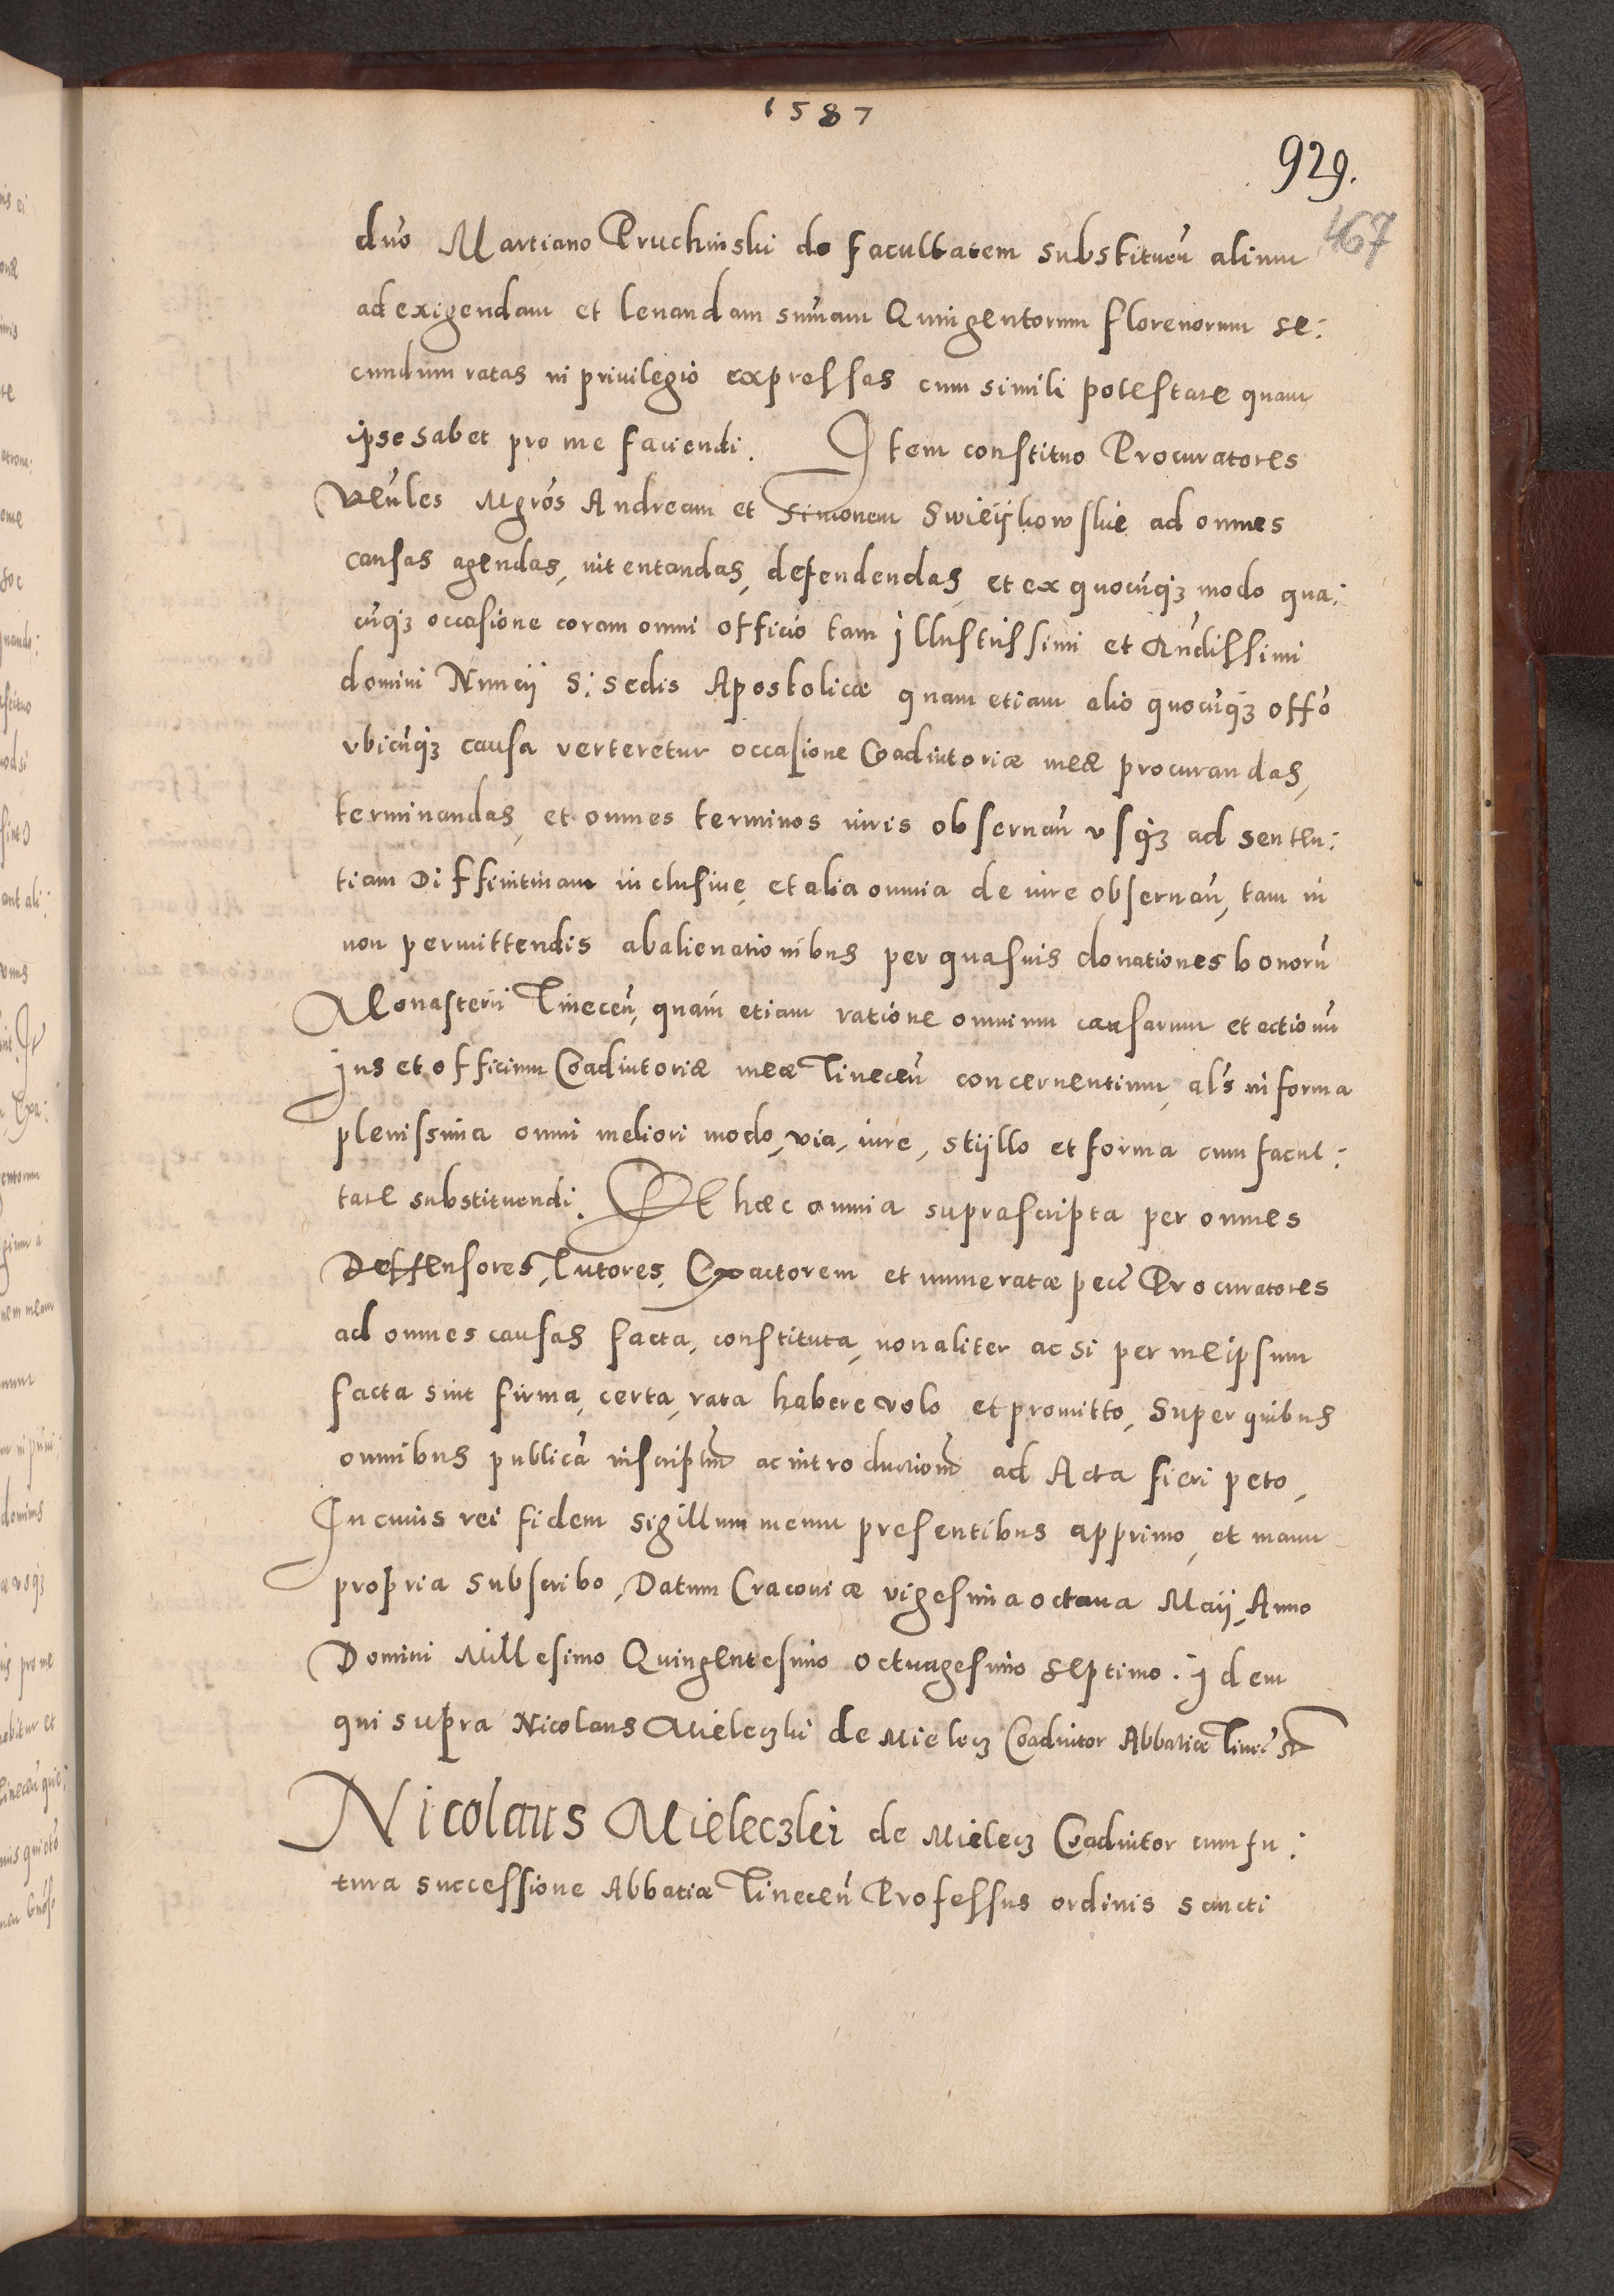 1587
929.
467
dno Martiano Pruchinski do facultatem substituen̄ alium
ad exigendam et leuandam sum̄am Quingentorum florenorum se:
cundum ratas in priuilegio expressas cum simili potestate quam
ipse habet pro me faciendi. Item constituo Procuratores
Ven̄les Mgros Andream et Simonem Swieijkowskie ad omnes
causas agendas, intentandas, defendendas et ex quocūq3 modo qua:
cūq3 occasione coram omni officio tam Jllustrissimi et Rn̄dissimi
domini Nuncij S: sedis Apostolicæ quam etiam alio quocūq3 offo
vbicūq3 causa verteretur occasione Coadiutoriæ meæ procurandas,
terminandas, et omnes terminos iuris obseruan̄ vsq3 ad senten:
tiam Diffinitiuam inclusiue, et alia omnia de iure obseruan̄, tam in
non permittendis abalienationibus per quasuis donationes bonorū
Monasterii Tinecen̄, quam etiam ratione omnium causarum et actionū
Jus et officium Coadiutoriæ meæ Tinecen̄ concernentium, als in forma
plenissima omni meliori modo, via, iure, stijllo et forma cum facul:
tate substituendi. Et hæc omnia suprascripta per omnes
Deffensores, Tutores, Exactorem et numeratæ pec̄ Procuratores
ad omnes causas facta, constituta, non aliter ac si per meipsum
facta sint firma, certa, rata habere volo et promitto, Super quibus
omnibus publicā inscriptm̄ ac introductionm̄ ad Acta fieri peto,
In cuius rei fidem sigillum meum presentibus apprimo, et manu
propria subscribo, Datum Cracouiæ vigesima octaua Maij, Anno
Domini Millesimo Quingentesimo octuagesimo septimo. Jdem
qui supra Nicolaus Mieleczki de Mielecz Coadiutor Abbatiæ Tinec̄
Nicolaus Mieleczki de Mielecz Coadiutor cum fu:
tura successione Abbatiæ Tinecen̄ Professus ordinis sancti